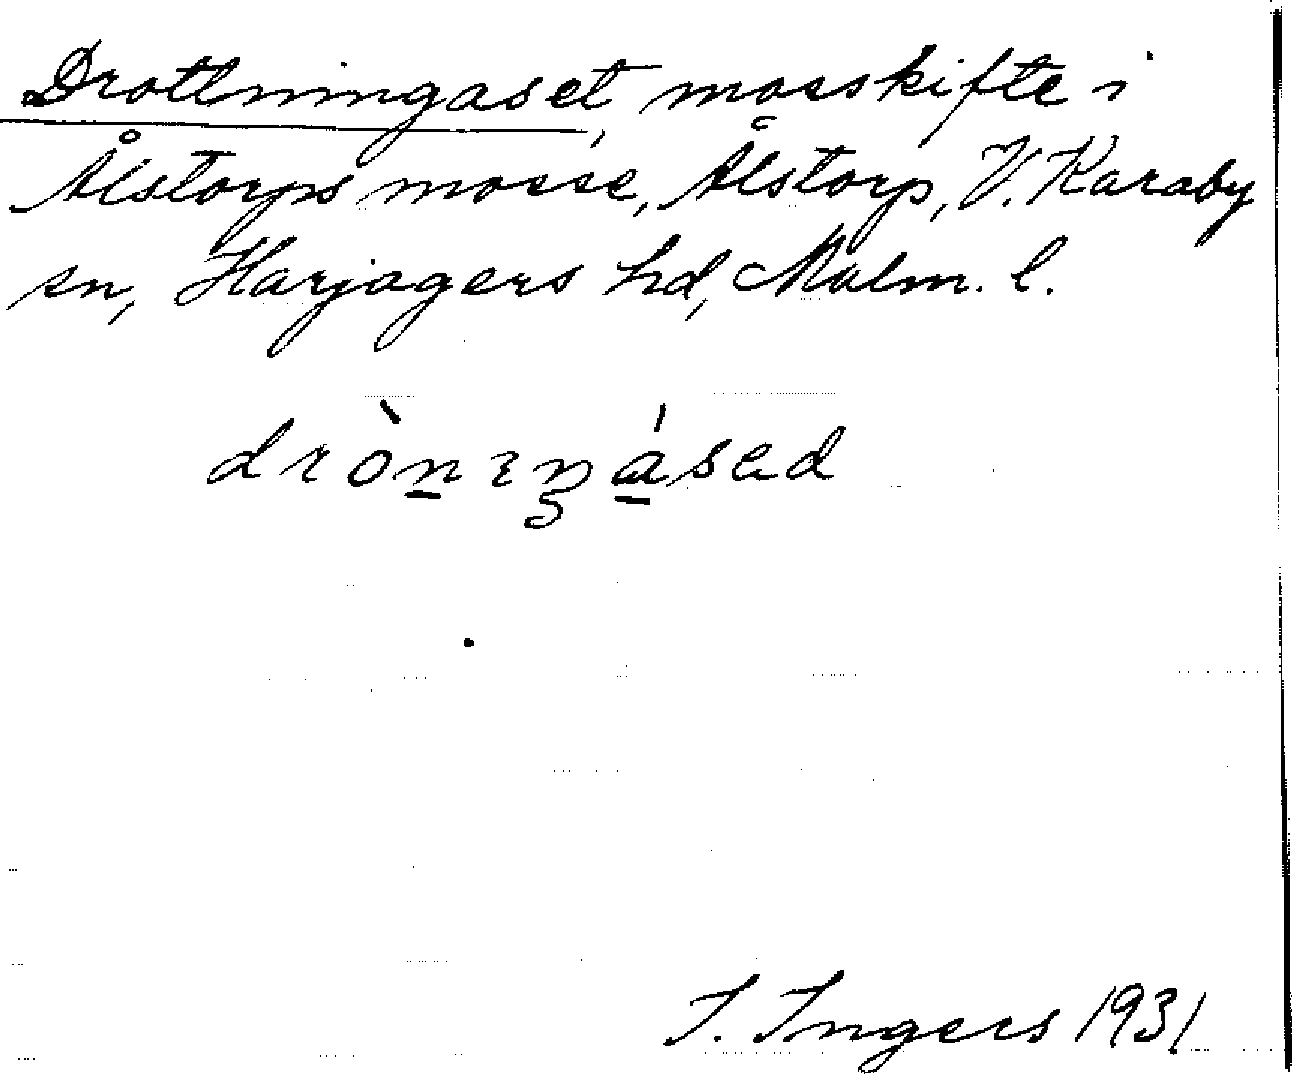 Drottningaset, mosskifte i
Ålstorps mosse, Ålstorp, V. Karaby
sn, Harjagers hd, Malm. l.
drònɪŋásed
I. Ingers 1931